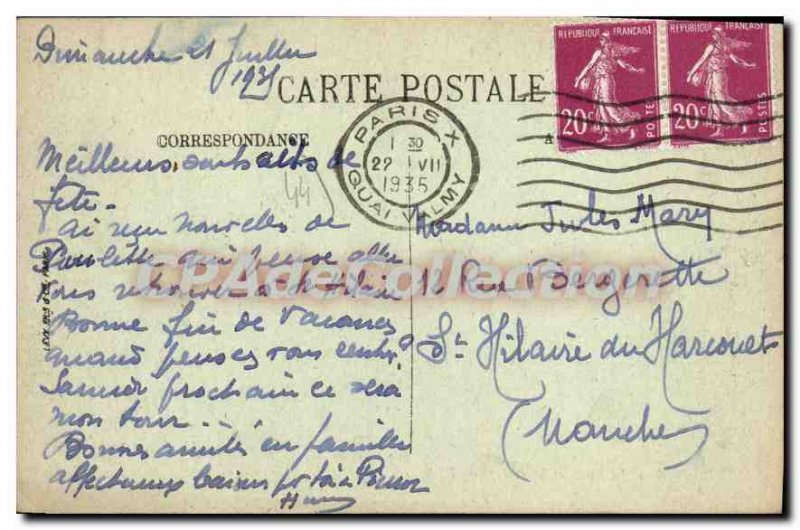 Dimanche 21 Juillet
1935
CARTE POSTALE
CORRESPONDANCE
A
RÉPUBLIQUE FRANÇAISE
20c
POSTES
RÉPUBLIQUE FRANÇAISE
20c
POSTES
PARIS X
1 30
22 VII
1935
QUAI VALMY
44
Meilleurs souhaits de
fête.
ai reçu nouvelles de
Paulette qui pense aller
vous retrouver à St Hilaire
Bonne fin de Vacances
quand pensez vous rentrer?
Samedi prochain ce sera
mon tour...
Bonnes amitiés en famille
affectueux baisers à
Madame Jules Mary
Rue
St Hilaire du Harcouet
Manche
CPAdeCollection